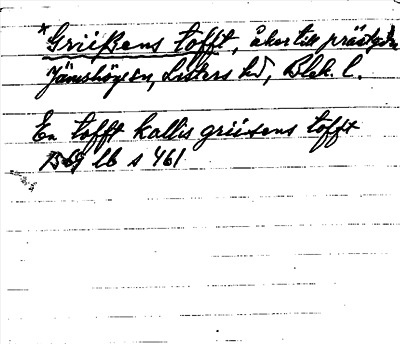 *Griißens tofft, åker till prästgdn
Jämshög sn, Listers hd, Blek. l.
En tofft kallis griisens tofft
1569 lb s 461